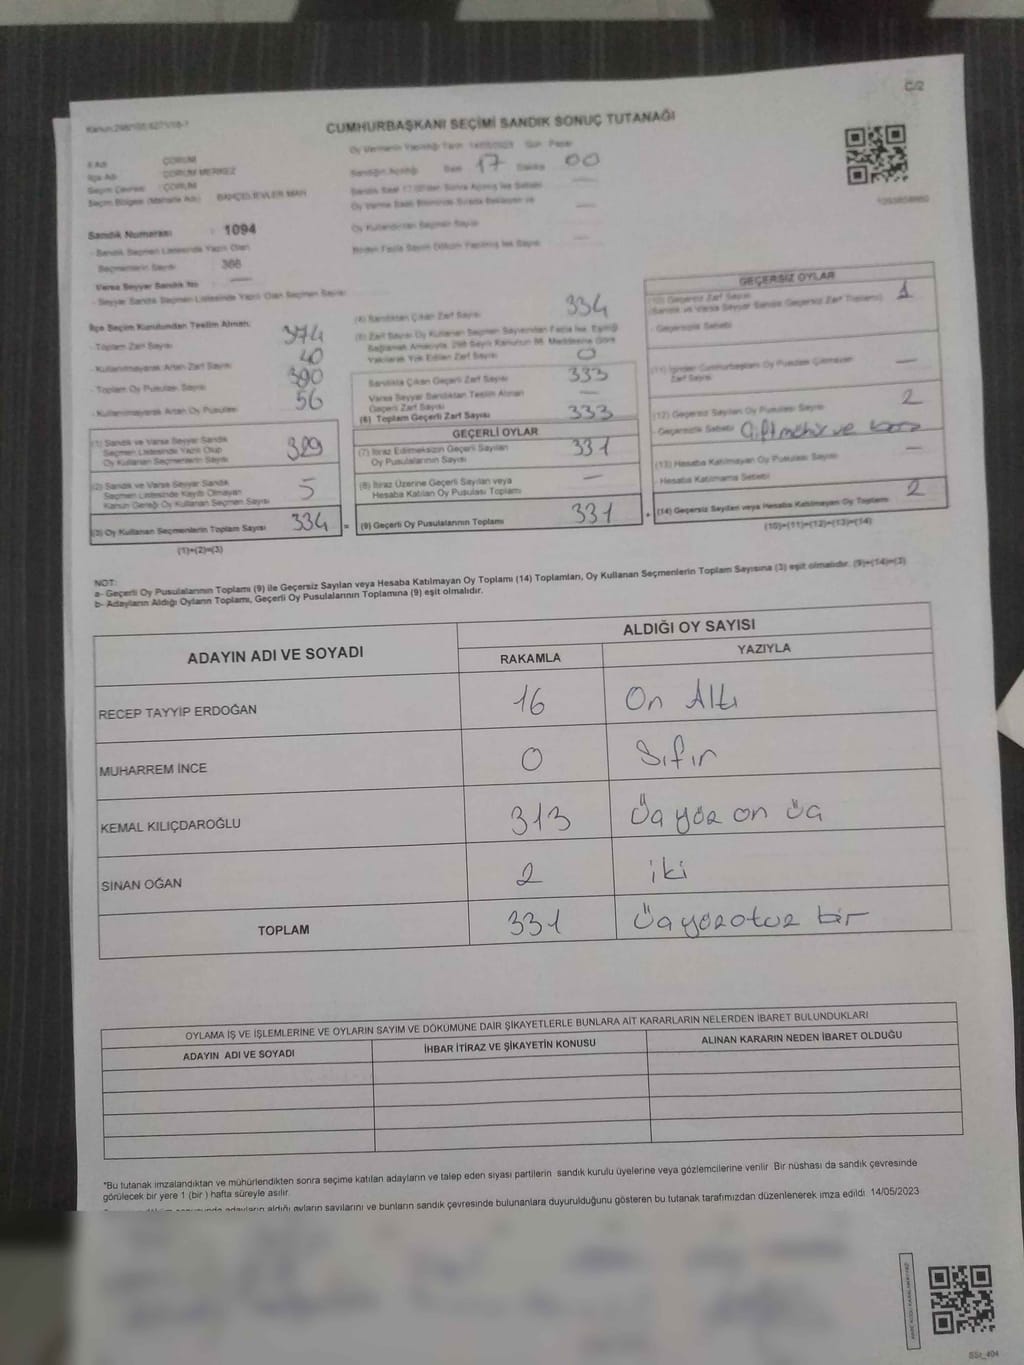 C/2
CUMHURBAŞKANI SEÇİMİ SANDIK SONUÇ TUTANAĞI
Oy Vermenin Yapıldığı Tarih 14/05/2023 Gün Pazar
İl Adı ÇORUM
İlçe Adı ÇORUM MERKEZ
Seçim Çevresi ÇORUM
Seçim Bölgesi (Mahalle Adı) BAHÇELİEVLER MAH
Sandığın Açıldığı Saat 17 Dakika 00
Sandık Numarası : 1094
- Sandık Seçmen Listesinde Yazılı Olan
Seçmenlerin Sayısı 366
Varsa Seyyar Sandık No
- Seyyar Sandık Seçmen Listesinde Yazılı Olan Seçmen Sayısı
Oy Kullandırılan Seçmen Sayısı
Birden Fazla Sayım Döküm Yapılmış İse Sayısı
İlçe Seçim Kurulundan Teslim Alınan:
- Toplam Zarf Sayısı 374
- Kullanılmayarak Artan Zarf Sayısı 40
- Toplam Oy Pusulası Sayısı 390
- Kullanılmayarak Artan Oy Pusulası 56
(1) Sandık ve Varsa Seyyar Sandık
Seçmen Listesinde Yazılı Olup
Oy Kullanan Seçmenlerin Sayısı 329
(2) Sandık ve Varsa Seyyar Sandık
Seçmen Listesinde Kayıtlı Olmayan
Kanun Gereği Oy Kullanan Seçmen Sayısı 5
(3) Oy Kullanan Seçmenlerin Toplam Sayısı 334 =
(1)+(2)=(3)
(4) Sandıktan Çıkan Zarf Sayısı 334
(5) Zarf Sayısı Oy Kullanan Seçmen Sayısından Fazla İse, Eşitliği
Sağlamak Amacıyla, 298 Sayılı Kanunun 98. Maddesine Göre
Yakılarak Yok Edilen Zarf Sayısı 0
Sandıkta Çıkan Geçerli Zarf Sayısı 333
Varsa Seyyar Sandıktan Teslim Alınan
Geçerli Zarf Sayısı —
(6) Toplam Geçerli Zarf Sayısı 333
GEÇERLİ OYLAR
(7) İtiraz Edilmeksizin Geçerli Sayılan
Oy Pusulalarının Sayısı 331
(8) İtiraz Üzerine Geçerli Sayılan veya
Hesaba Katılan Oy Pusulası Toplamı —
(9) Geçerli Oy Pusulalarının Toplamı 331 +
GEÇERSİZ OYLAR
(10) Geçersiz Zarf Sayısı
(Sandık ve Varsa Seyyar Sandık Geçersiz Zarf Toplamı) 1
- Geçersizlik Sebebi
(11) İçinden Cumhurbaşkanı Oy Pusulası Çıkmayan
Zarf Sayısı —
(12) Geçersiz Sayılan Oy Pusulası Sayısı 2
- Geçersizlik Sebebi Çift mühür ve
(13) Hesaba Katılmayan Oy Pusulası Sayısı —
- Hesaba Katılmama Sebebi
(14) Geçersiz Sayılan veya Hesaba Katılmayan Oy Toplamı 2
(10)+(11)+(12)+(13)=(14)
NOT:
a- Geçerli Oy Pusulalarının Toplamı (9) ile Geçersiz Sayılan veya Hesaba Katılmayan Oy Toplamı (14) Toplamları, Oy Kullanan Seçmenlerin Toplam Sayısına (3) eşit olmalıdır. (9)+(14)=(3)
b- Adayların Aldığı Oyların Toplamı, Geçerli Oy Pusulalarının Toplamına (9) eşit olmalıdır.
ADAYIN ADI VE SOYADI
ALDIĞI OY SAYISI
RAKAMLA YAZIYLA
RECEP TAYYİP ERDOĞAN 16 On Altı
MUHARREM İNCE 0 Sıfır
KEMAL KILIÇDAROĞLU 313 Üç yüz on üç
SİNAN OĞAN 2 iki
TOPLAM 331 Üç yüz otuz bir
OYLAMA İŞ VE İŞLEMLERİNE VE OYLARIN SAYIM VE DÖKÜMÜNE DAİR ŞİKAYETLERLE BUNLARA AİT KARARLARIN NELERDEN İBARET BULUNDUKLARI
ADAYIN ADI VE SOYADI İHBAR İTİRAZ VE ŞİKAYETİN KONUSU ALINAN KARARIN NEDEN İBARET OLDUĞU
*Bu tutanak imzalandıktan ve mühürlendikten sonra seçime katılan adayların ve talep eden siyasi partilerin sandık kurulu üyelerine veya gözlemcilerine verilir. Bir nüshası da sandık çevresinde
görülecek bir yere 1 (bir ) hafta süreyle asılır.
adayların aldığı oyların sayılarını ve bunların sandık çevresinde bulunanlara duyurulduğunu gösteren bu tutanak tarafımızdan düzenlenerek imza edildi. 14/05/2023
SSt_404